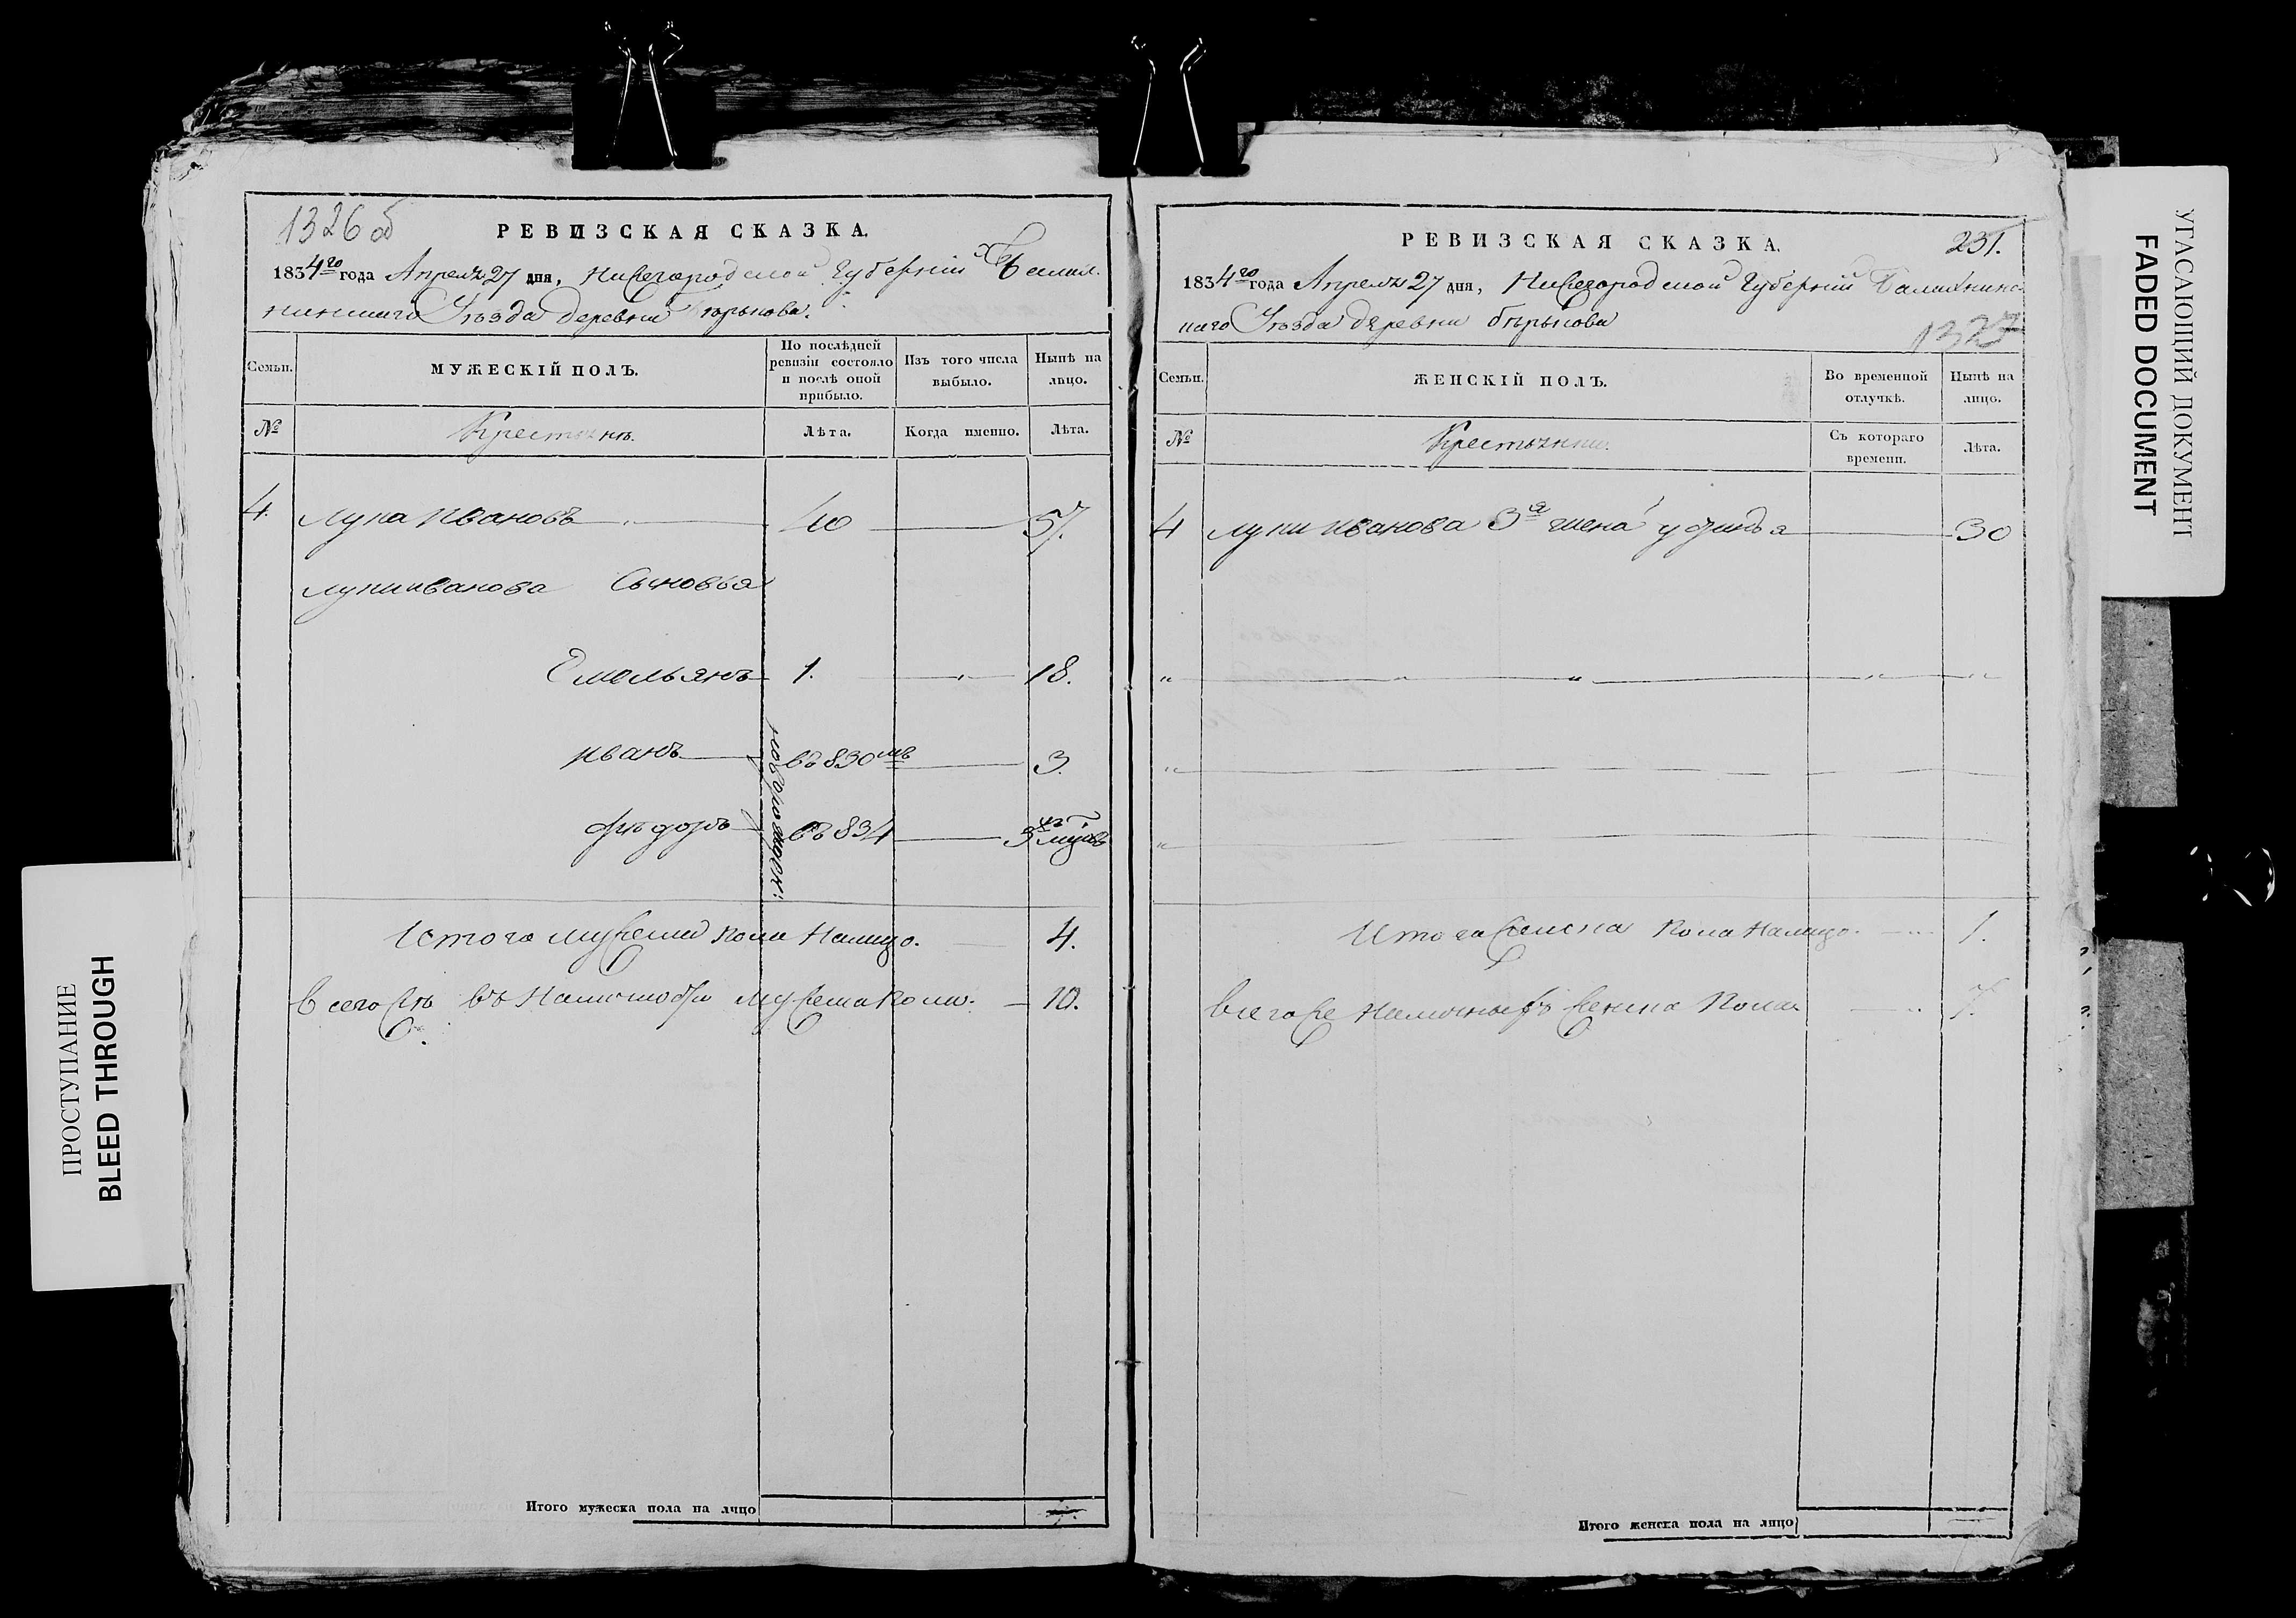 1326 об
РЕВИЗСКАЯ СКАЗКА.
1834го года Апреля 27 дня, Нижегородской Губернии Балах-
нинскаго Уезда деревни
Семьи.
МУЖЕСКІЙ ПОЛЪ.
По послѣдней ревизіи состояло и послѣ оной прибыло.
Изъ того числа выбыло.
Нынѣ на лицо.
№
Крестьянъ.
Лѣта.
Когда именно.
Лѣта.
4. Лупа Ивановъ 40 57.
Лупы иванова Сыновья
Емельянъ 1. 18.
иванъ въ 830мъ 3.
федоръ въ 834 3
Итого мужеска пола Налицо. 4.
Всего же въ мужеска пола. 10.
Итого мужеска пола на лицо
РЕВИЗСКАЯ СКАЗКА.
231.
1834го года Апреля 27 дня, Нижегородской Губернии Балахнинс-
каго Уезда деревни
1327
Семьи.
ЖЕНСКІЙ ПОЛЪ.
Во временной отлучкѣ.
Нынѣ на лицо.
№
Крестьянки.
Съ котораго времени.
Лѣта.
4 Лупы иванова 3я жена 30
Итого женска пола Налицо. 1.
Всего же Наличныхъ женска пола. 7.
Итого женска пола на лицо
УГАСАЮЩИЙ ДОКУМЕНТ
FADED DOCUMENT
ПРОСТУПАНИЕ
BLEED THROUGH